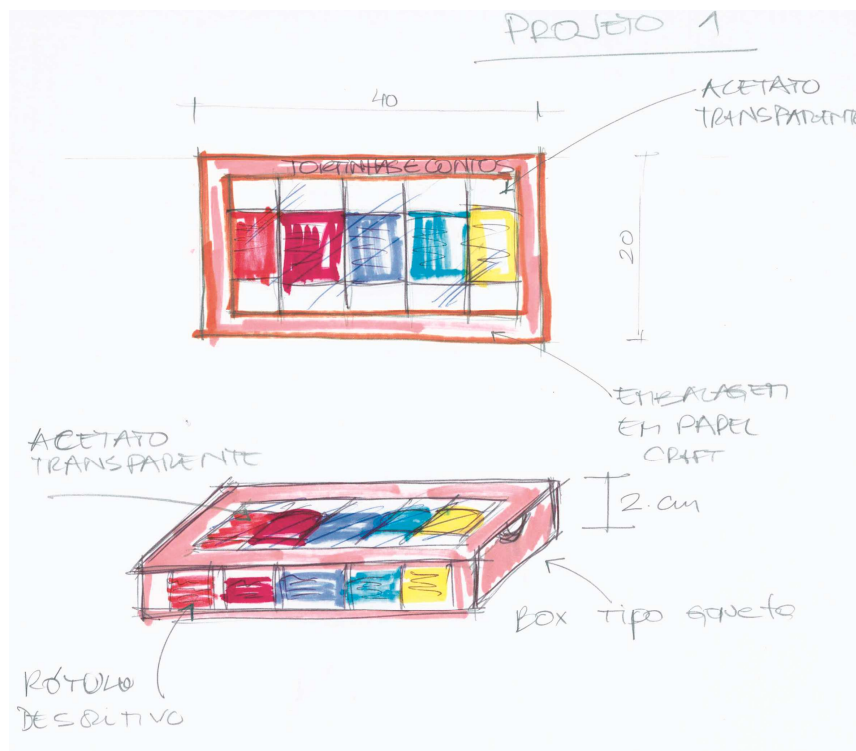 PROJETO 1
40
ACETATO
TRANSPARENTE
TORTINHAS E CONTOS
20
EMBALAGEM
EM PAPEL
CRAFT
ACETATO
TRANSPARENTE
2.cm
BOX TIPO gaveta
RÓTULO
DESCRITIVO